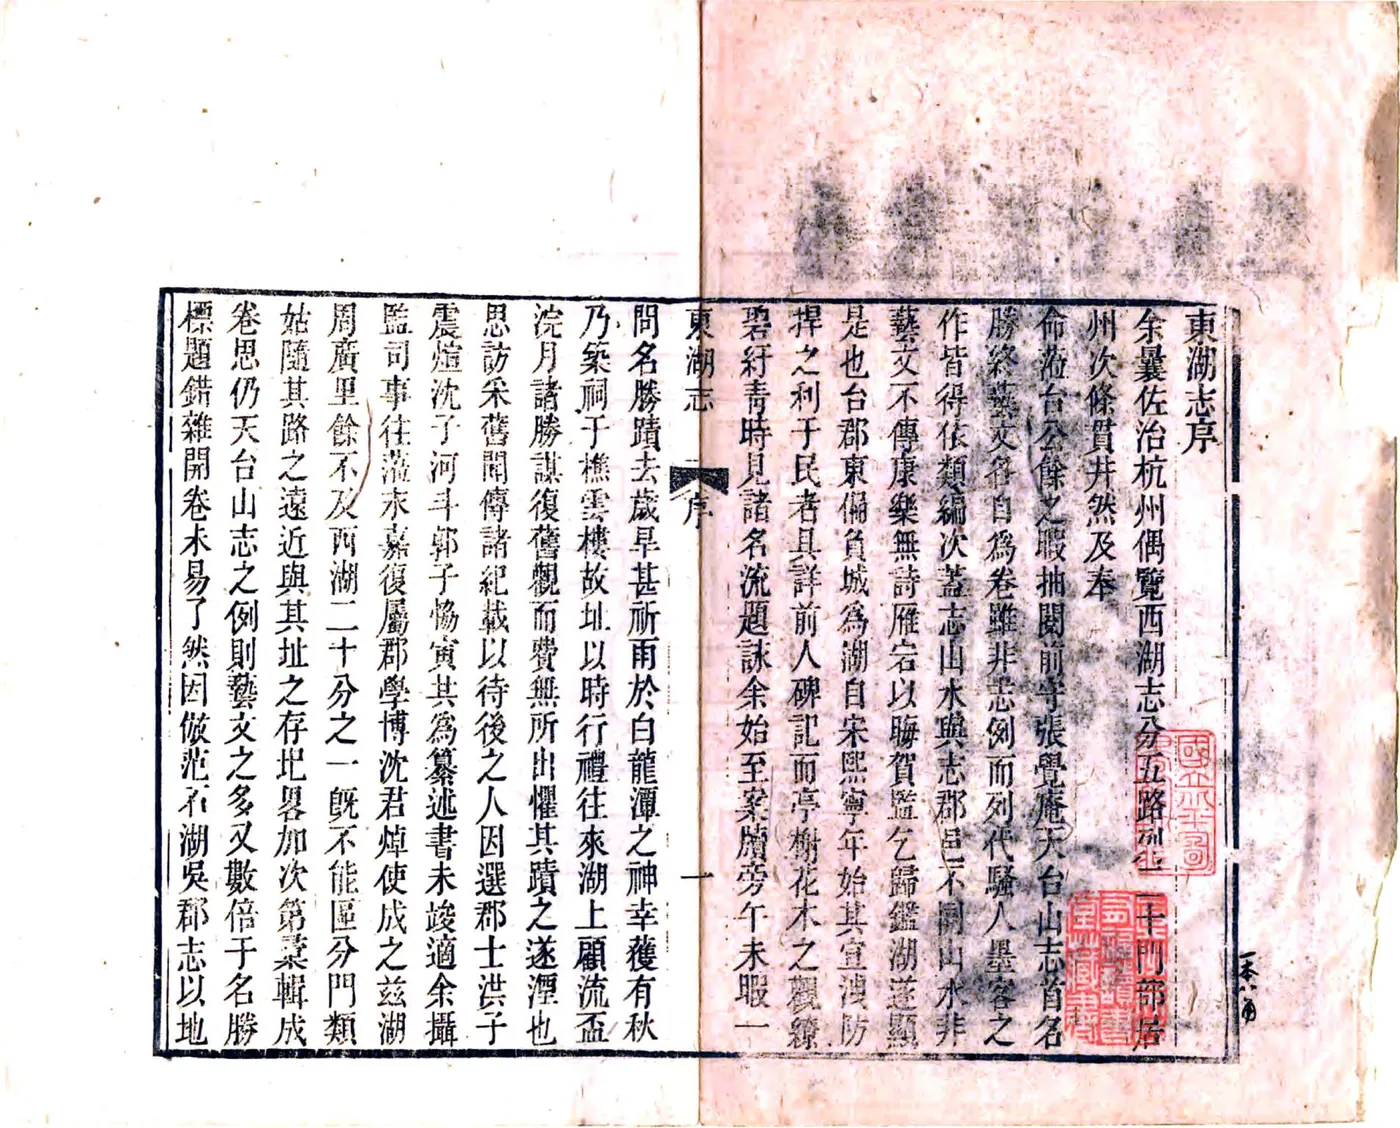 東湖志序
余曩佐治杭州偶覽西湖志分五路列二十門部居
州次條貫井然及奉
命涖台公餘之暇抽閱前守張覺庵天台山志首名
勝終藝文各自為卷雖非志例而列代騷人墨客之
作皆得依類編次蓋志山水與志郡邑不同山水非
藝文不傳康樂無詩雁宕以晦賀監乞歸鑑湖遂顯
是也台郡東偏負城為湖自宋熙寧年始其宣洩防
捍之利于民者具詳前人碑記而亭榭花木之觀繚
碧紆青時見諸名流題詠余始至案牘旁午未暇一
東湖志 序 一
問名勝蹟去歲旱甚祈雨於白龍潭之神幸獲有秋
乃築祠于樵雲樓故址以時行禮往來湖上顧流盃
浣月諸勝謀復舊觀而費無所出懼其蹟之遂湮也
思訪采舊聞傳諸紀載以待後之人因選郡士洪子
震煊沈子河斗郭子協寅其為纂述書未竣適余攝
監司事往涖永嘉復屬郡學博沈君焯使成之茲湖
周廣里餘不及西湖二十分之一旣不能區分門類
姑隨其路之遠近與其址之存圯畧加次第彚輯成
卷思仍天台山志之例則藝文之多又數倍于名勝
標題錯雜開卷未易了然因倣范石湖吳郡志以地